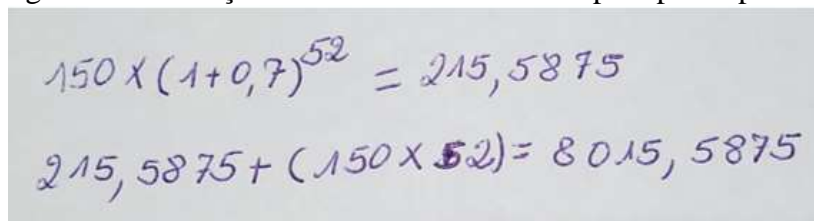 150 x (1+0,7)^52 = 215,5875
215,5875 + (150 x 52) = 8015,5875